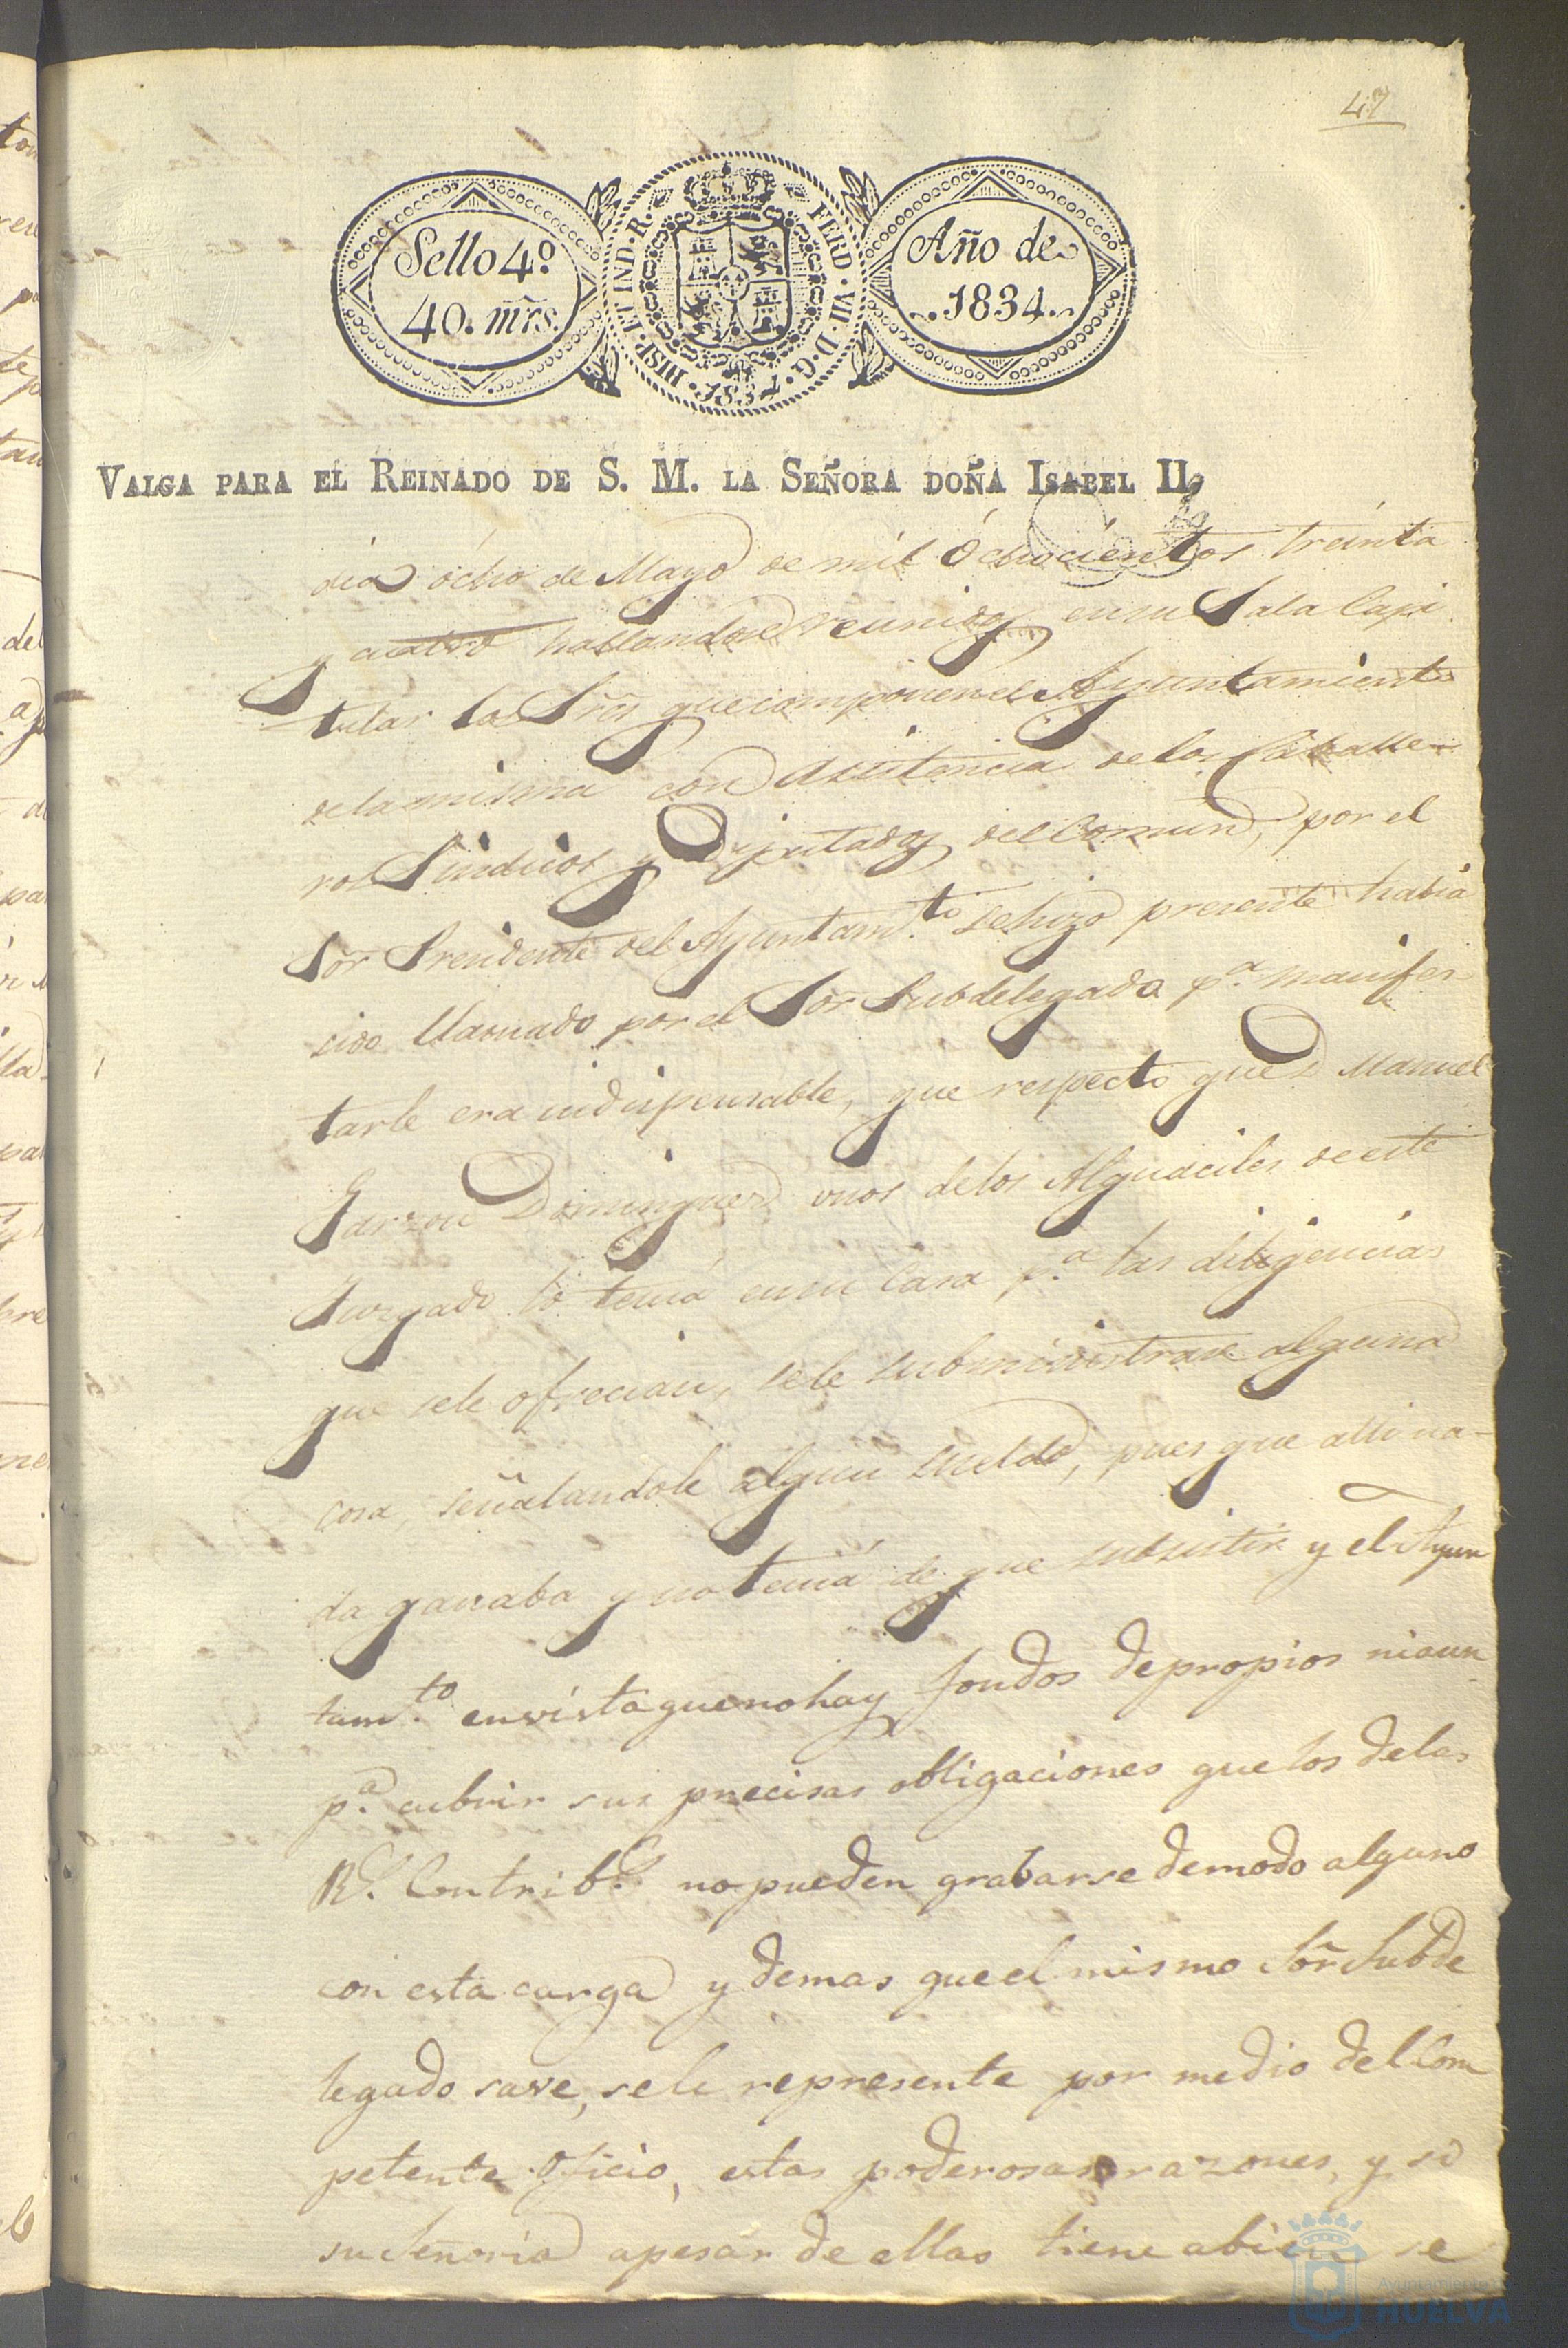 47
Sello 4º
40. mrs.
HISP. ET IND. R.
FERD. VII. D. G.
1834
Año de
1834.
VALGA PARA EL REINADO DE S. M. LA SEÑORA DOÑA ISABEL II,
dia ócho de Mayo de mil óchocientos treinta
y cuatro hallandose reunidos en su Sala Capi
tular los Sres que componen el Ayuntamiento
de la misma con asistencia de los Caballe-
ros Sindicos y Diputados del Comun, por el
Sor Presidente del Ayuntam.to se hizo presente habia
sido llamado por el Sor Subdelegado p.a manifes-
tarle era indispensable, que respecto que D Manuel
Garzon Dominguez unos de los Alguaciles de este
Juzgado lo tenia en su Casa p.a las diligencias
que se le ofrecian, se le subministrase alguna
cosa, señalandole algun sueldo, pues que alli na-
da ganaba y no tenia de que subsistir y el Ayun
tam.to en vista que no hay fondos de propios ni aun
p.a cubrir sus precisas obligaciones que los de las
R.s Contrib.s no pueden grabarse de modo alguno
con esta carga y demas que el mismo Sor Subde
legado save, se le represente por medio del Com
petente Oficio, estas poderosas razones, y si
su Señoria apesar de ellas tiene abien se
Ayuntamiento
HUELVA